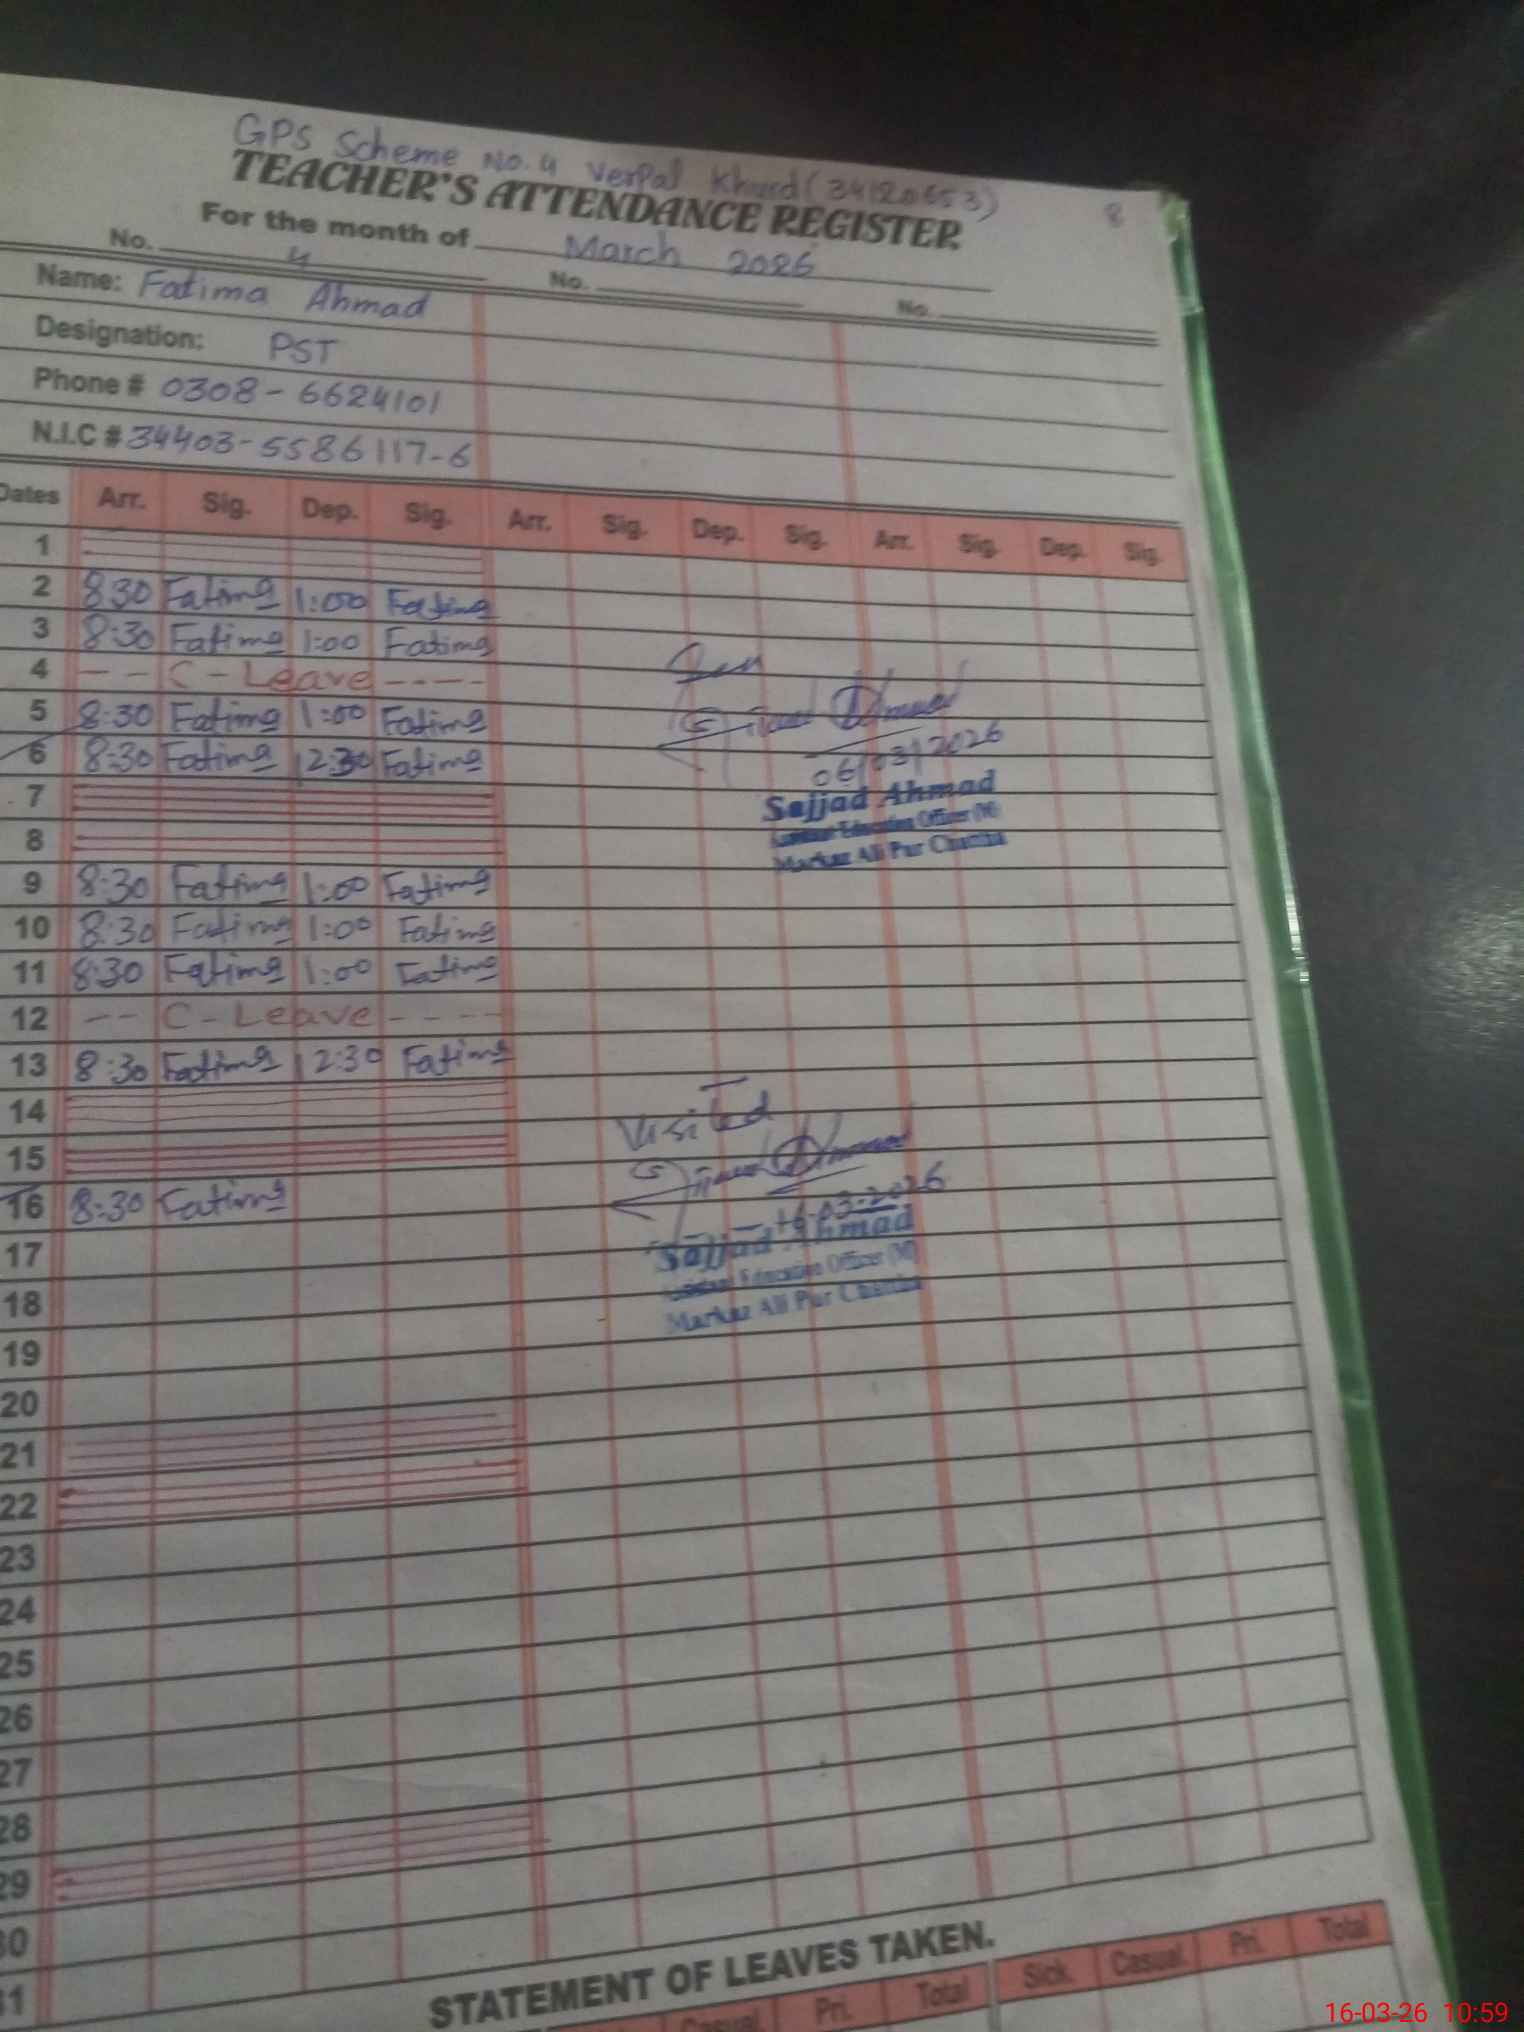 GPS Scheme No.4 VerPal Khurd (34120653)
8
TEACHER'S ATTENDANCE REGISTER
For the month of March 2026
No. 4 No. No.
Name: Fatima Ahmad
Designation: PST
Phone # 0308-6624101
N.I.C # 34403-5586117-6
Dates Arr. Sig. Dep. Sig. Arr. Sig. Dep. Sig. Arr. Sig. Dep. Sig.
1
2 8:30 Fatima 1:00 Fatima
3 8:30 Fatima 1:00 Fatima
4 -- C-Leave ----
5 8:30 Fatima 1:00 Fatima
6 8:30 Fatima 12:30 Fatima
06/03/2026
7
Sajjad Ahmad
8
Assistant Education Officer (M)
Markaz Ali Pur Chattha
9 8:30 Fatima 1:00 Fatima
10 8:30 Fatima 1:00 Fatima
11 8:30 Fatima 1:00 Fatima
12 -- C-Leave ----
13 8:30 Fatima 12:30 Fatima
14
Visited
15
16 8:30 Fatima
16-03-2026
17
Sajjad Ahmad
Assistant Education Officer (M)
18
Markaz Ali Pur Chattha
19
20
21
22
23
24
25
26
27
28
29
30
31
STATEMENT OF LEAVES TAKEN.
Casual Pri. Total Sick Casual Pri. Total
16-03-26 10:59